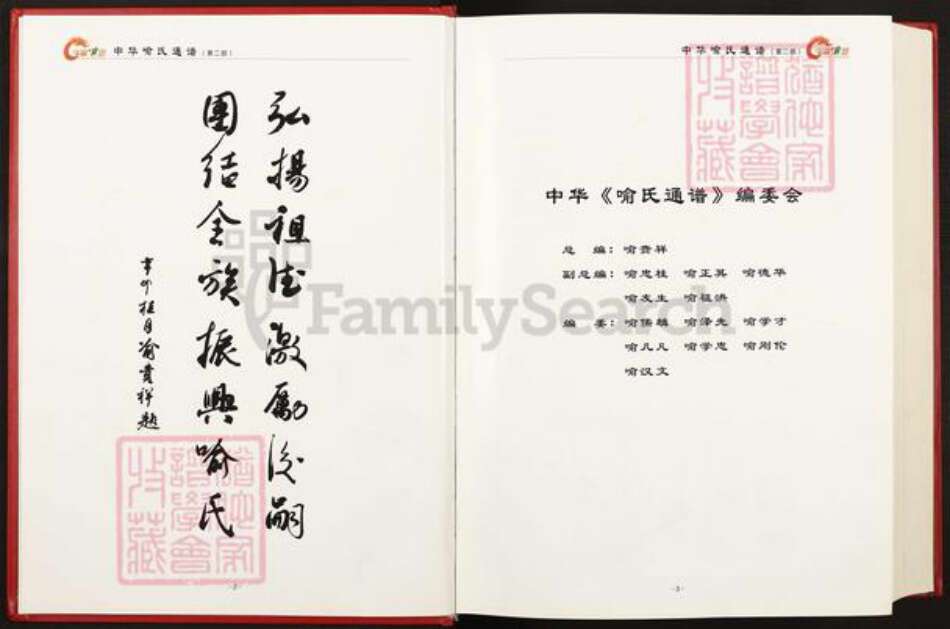 中华喻氏通谱（第二部）
弘揚祖德激勵後嗣
團结全族振興喻氏
辛卯桂月喻贵祥题
中华喻氏通谱（第二部）
中华《喻氏通谱》编委会
总 编：喻贵祥
副总编：喻忠桂 喻正其 喻德华
喻友生 喻祖洪
编 委：喻儒雄 喻泽先 喻学才
喻凡凡 喻学忠 喻刚伦
喻汉文
-3-
收藏
譜學會
FamilySearch